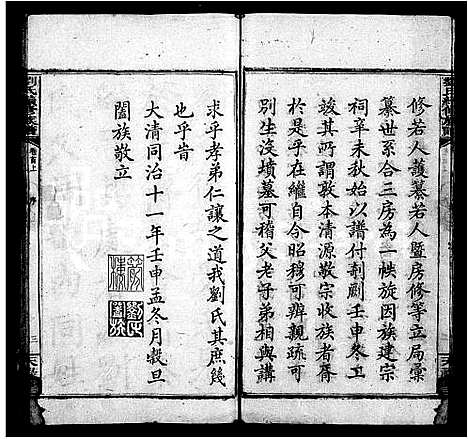 修若人護纂若人暨房修等立局彙
纂世系合三房為一帙旋因族建宗
祠辛未秋始以譜付剞劂壬申冬工
竣其所謂敦本清源敬宗收族大率
於是乎在繼自今昭穆可辨親疏可
別生沒墳墓可稽父老子弟相與講
求乎孝弟仁讓之道我劉氏其庶幾
也乎旹
大清同治十一年壬申孟冬月穀旦
闔族敬立
劉氏
卷首上
三